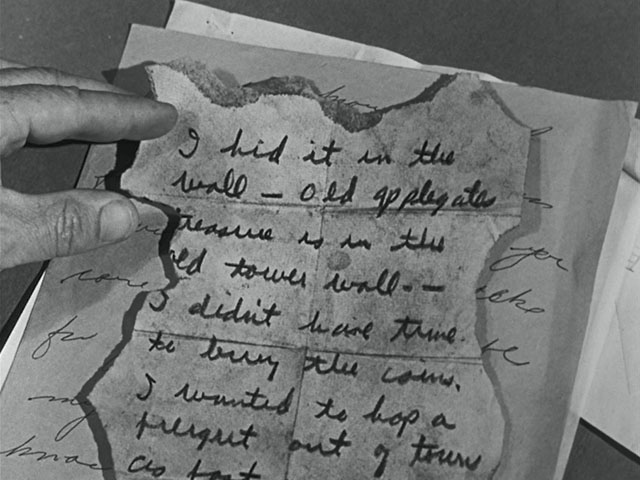 I hid it in the
wall - old applegates
treasure is in the
old tower wall--
I didn't have time
to bury the coins.
I wanted to hop a
freight out of town
as fast
for
my
know